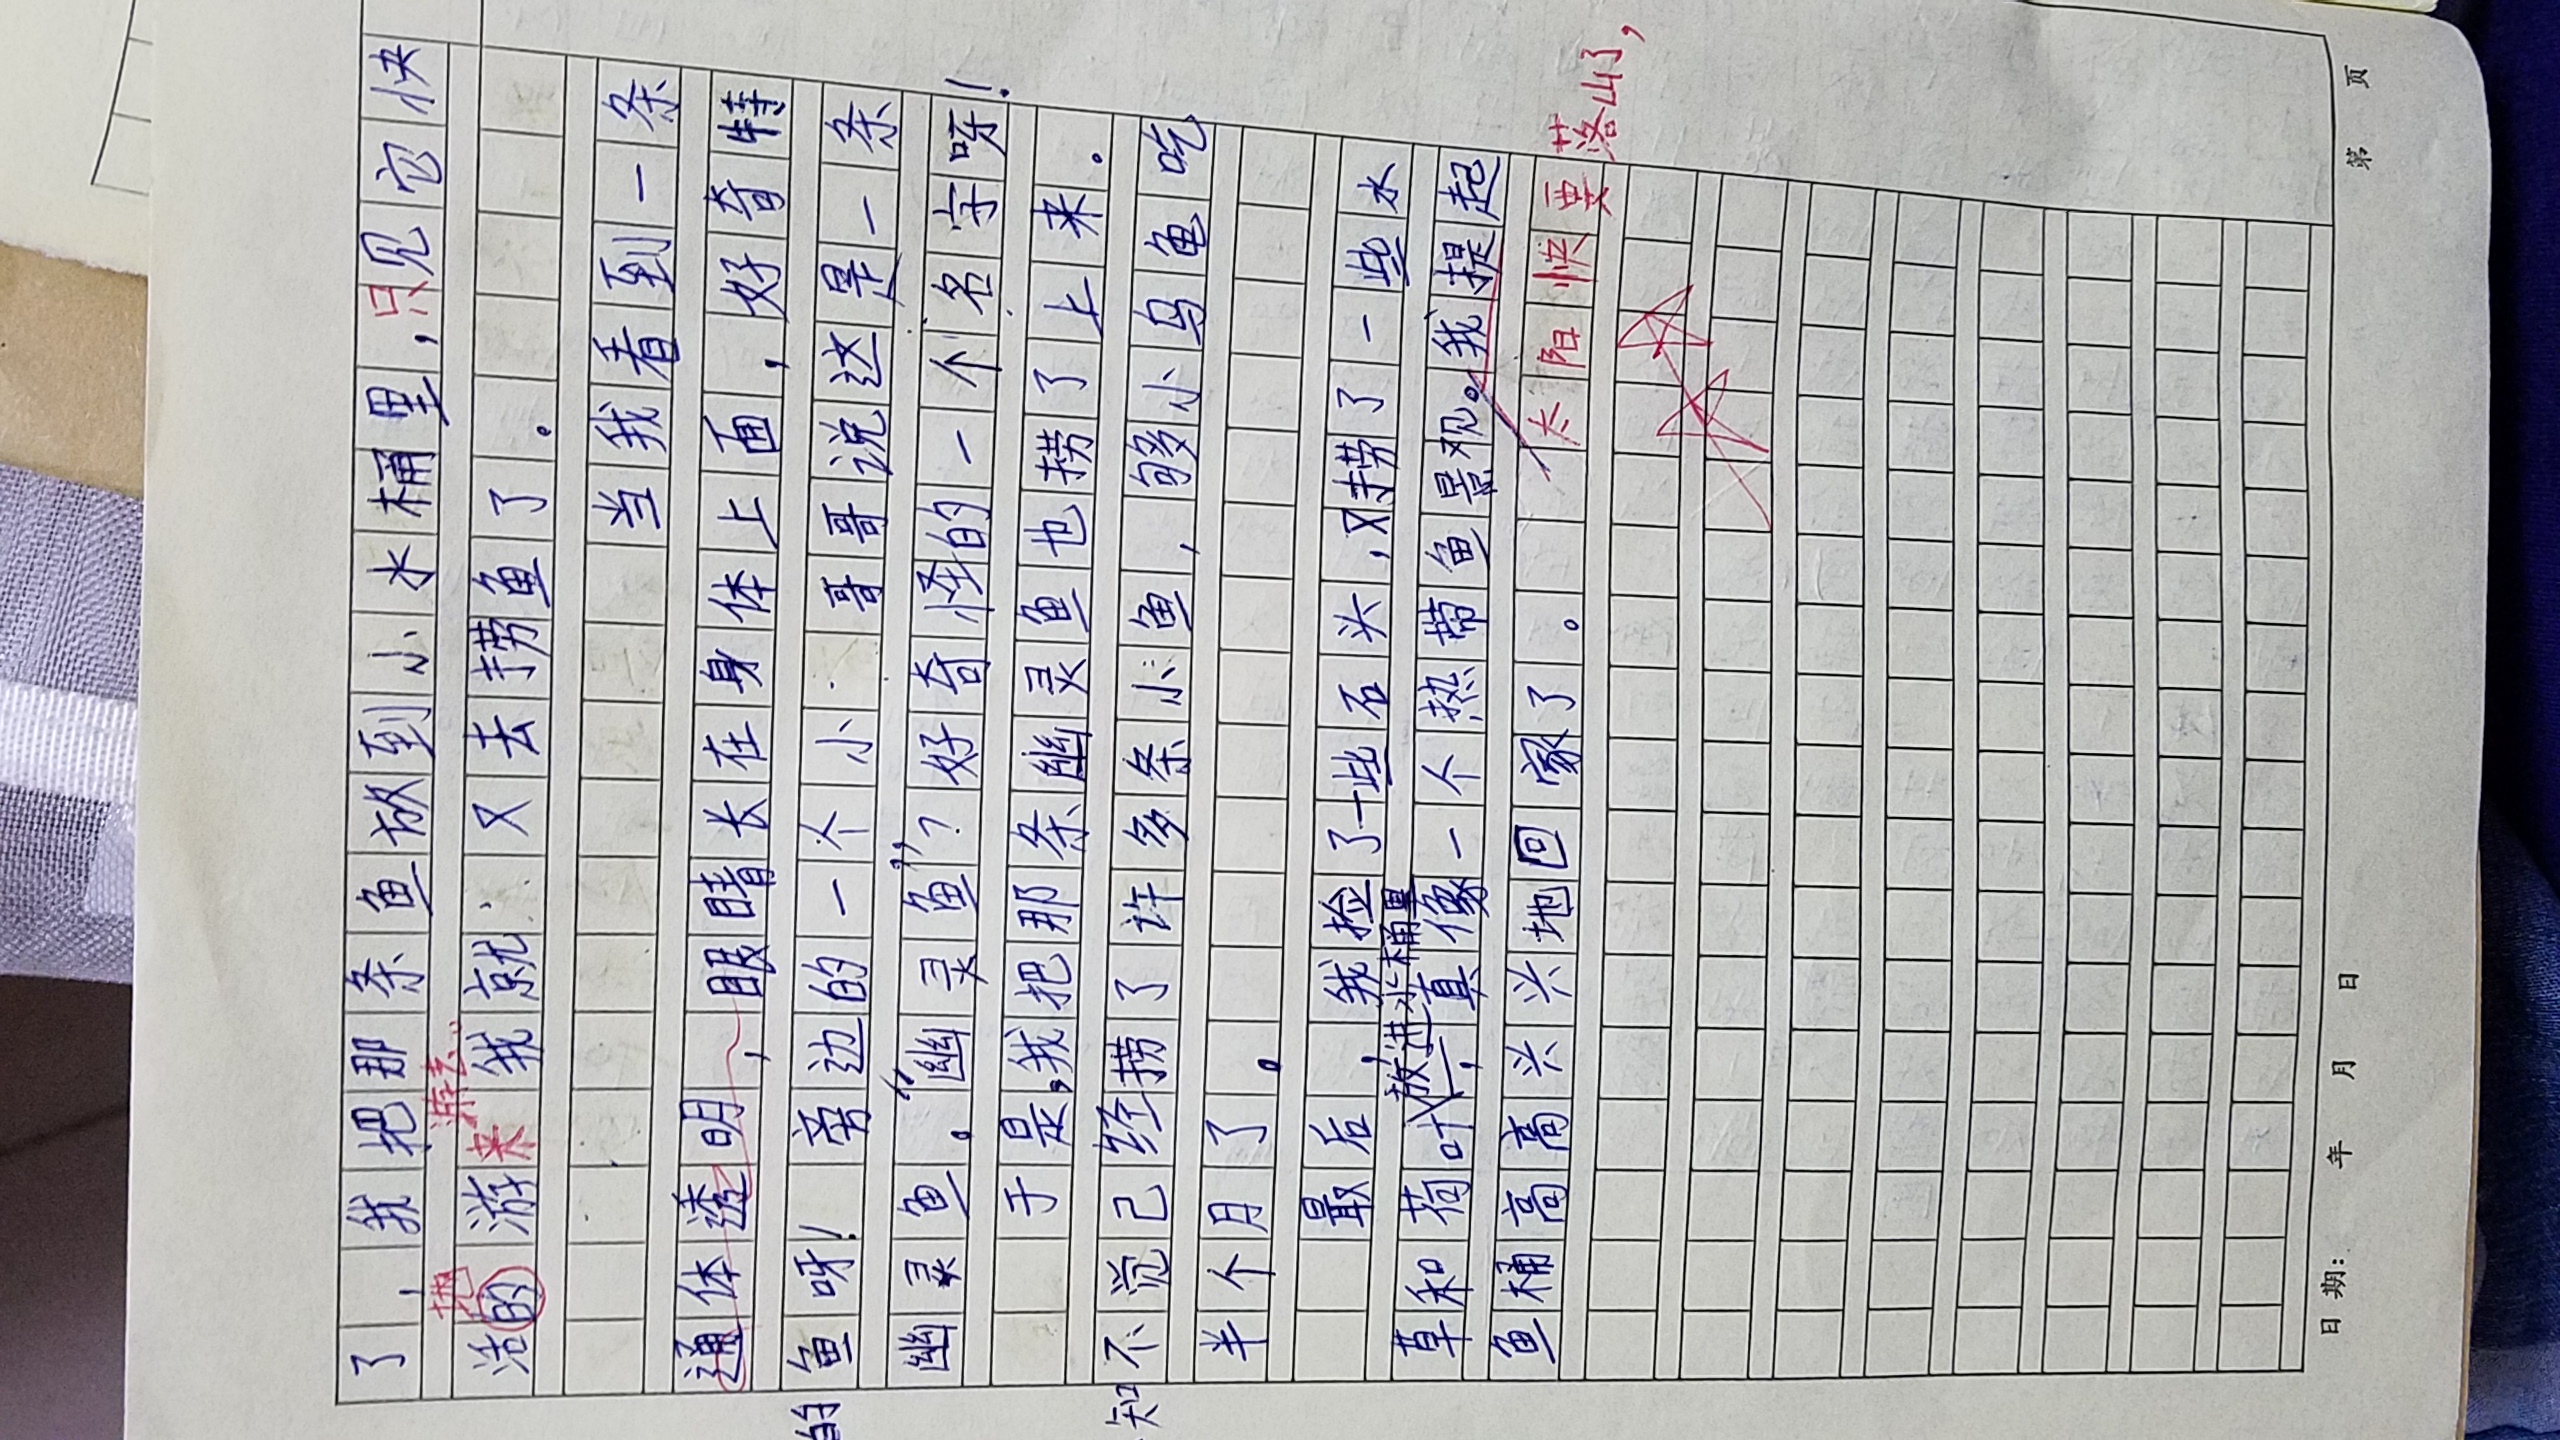 了，我把那条鱼放到小水桶里，只见它快
地 游去。
活的游来我就又去捞鱼了。
当我看到一条
通体透明，眼睛长在身体上面，好奇特
的鱼呀！旁边的一个小哥哥说这是一条
幽灵鱼。“幽灵鱼”？好奇怪的一个名字呀！
于是，我把那条幽灵鱼也捞了上来。
知不觉己经捞了许多条小鱼，够小乌龟吃
半个月了。
最后，我捡了一些石头，又捞了一些水
放进水桶里
草和荷叶，真像一个热带鱼景观。我提起
鱼桶高高兴兴地回家了。太阳快要落山了，
日期： 年 月 日 第 页